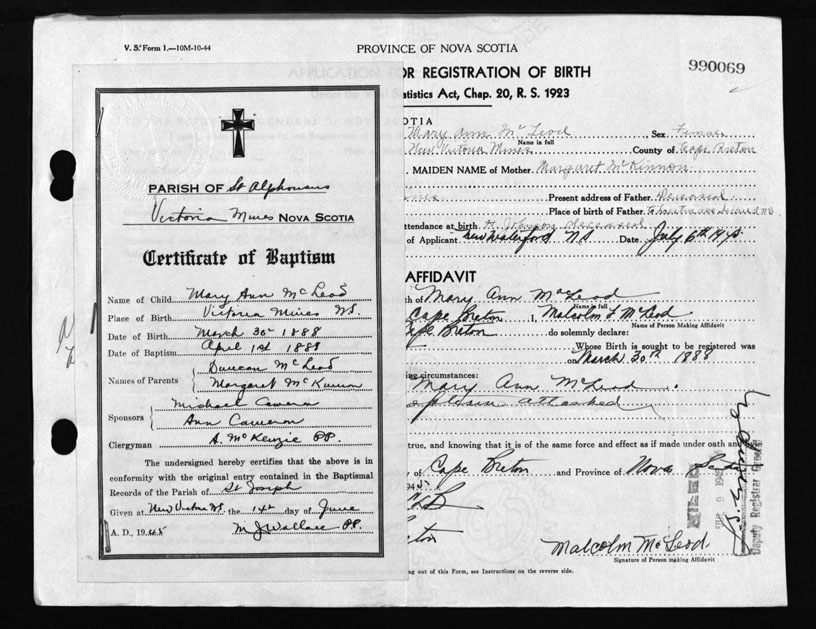 V. S. Form 1.—10M-10-44
PROVINCE OF NOVA SCOTIA
990069
R REGISTRATION OF BIRTH
tatistics Act, Chap. 20, R. S. 1923
OTIA
Mary Ann McLeod Sex Female
Name in full
New Victoria Mines County of Cape Breton
MAIDEN NAME of Mother Margaret McKinnon
Present address of Father Deceased
Place of birth of Father
ttendance at birth H. Johnson deceased
of Applicant New Waterford N.S Date July 6th 1945
PARISH OF St Alphonsus
Victoria Mines NOVA SCOTIA
Certificate of Baptism
Name of Child Mary Ann McLeod
Place of Birth Victoria Mines NS.
Date of Birth March 30th 1888
Date of Baptism April 1st 1888
Names of Parents
Duncan McLeod
Margaret McKinnon
Sponsors
Michael Cameron
Ann Cameron
Clergyman A. McKenzie PP.
The undersigned hereby certifies that the above is in
conformity with the original entry contained in the Baptismal
Records of the Parish of St Joseph
Given at New Victoria NS. the day of June
A. D., 1945 M J Wallace PP.
AFFIDAVIT
th of Mary Ann McLeod
Name in full
Cape Breton I, Malcolm F McLeod
Name of Person Making Affidavit
Cape Breton do solemnly declare:
Whose Birth is sought to be registered was
on March 30th 1888
ing circumstances:
Mary Ann McLeod
attached
true, and knowing that it is of the same force and effect as if made under oath and
y of Cape Breton and Province of Nova
Malcolm McLeod
Signature of Person making Affidavit
ng out of this Form, see Instructions on the reverse side.
FILED
Deputy Registrar General